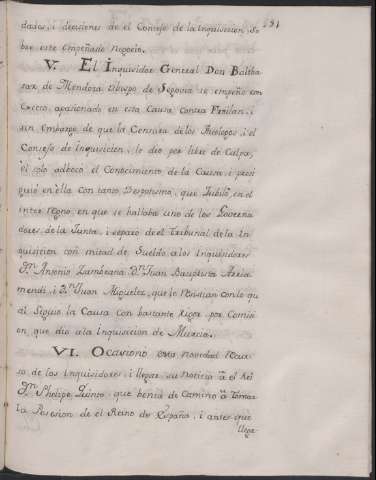 dades, i decisiones de el Consejo de la Inquisicion, so
bre este Empeñado negocio.
V. El Inquisidor General Don Baltha
sar de Mendoza Obispo de Segovia se empeño con
Exceso, apasionado en esta Causa contra Froilan, i
sin embargo de que la Censura de los theologos, i el
Consejo de Inquisicion, le dio por libre de Culpa,
el solo adbocò el Conocimiento de la Causa, i prosi
guiò en ella con tanto Despotismo, que Jubilò, en el
inter regno, en que se hallaba uno de los Governa
dores, de la Junta, i separò de el Tribunal de la In
quisicion con mitad de Sueldo a los Inquisidores
Dn. Antonio Zambrana Dn. Juan Bauptista Arza
mendi, i Dn. Juan Miguelez, que le resistian con lo qu
al Siguio la Causa con bastante rigor, por Comisi
on, que dio a la Inquisicion de Murcia.
VI. Ocasionò esta novedad recur
so de los Inquisidores, i llegar su noticia à el Rei
Dn. Phelipe Quinto, que benia de camino à tomar
la Posesion de el Reino de España, i antes que
llega